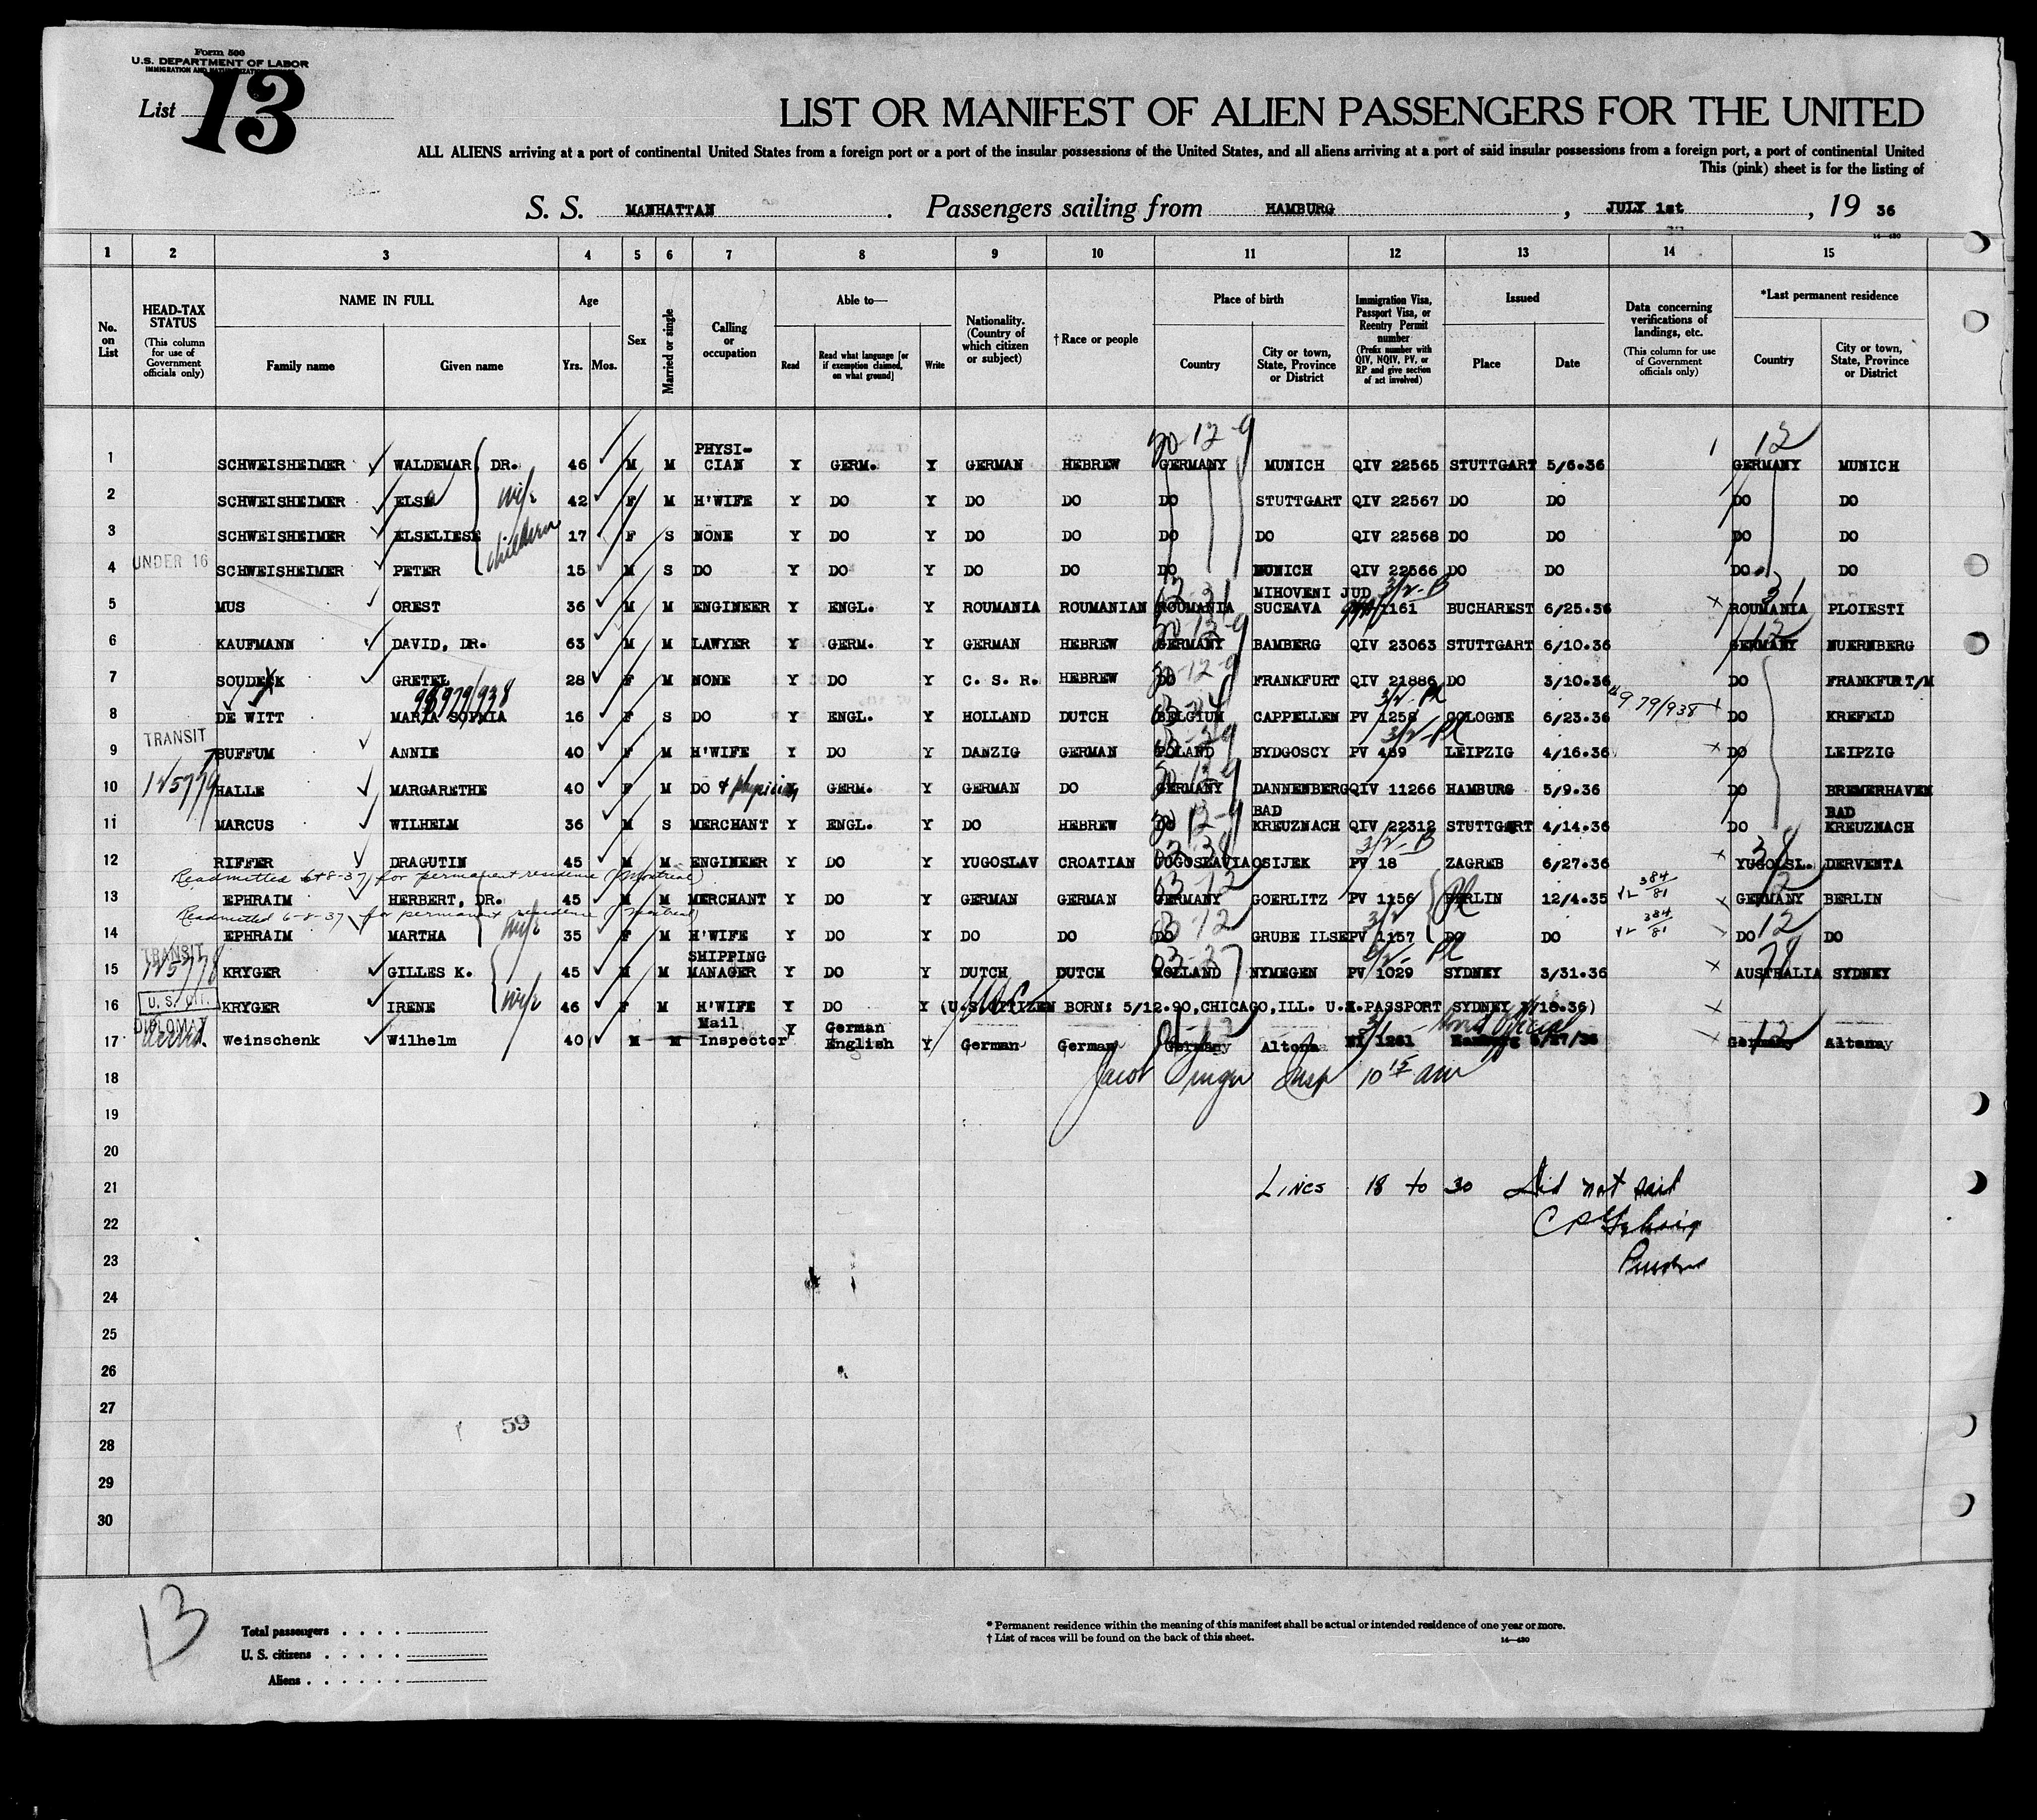 Form 500
U.S. DEPARTMENT OF LABOR
IMMIGRATION AND NATURALIZATION
List 13
LIST OR MANIFEST OF ALIEN PASSENGERS FOR THE UNITED
ALL ALIENS arriving at a port of continental United States from a foreign port or a port of the insular possessions of the United States, and all aliens arriving at a port of said insular possessions from a foreign port, a port of continental United
This (pink) sheet is for the listing of
S. S. MANHATTAN . Passengers sailing from HAMBURG , JULY 1st , 19 36
1 2 3 4 5 6 7 8 9 10 11 12 13 14 15
No. on List
HEAD-TAX STATUS (This column for use of Government officials only)
NAME IN FULL Family name Given name
Age Yrs. Mos.
Sex
Married or single
Calling or occupation
Able to— Read Read what language [or if exemption claimed, on what ground] Write
Nationality. (Country of which citizen or subject)
† Race or people
Place of birth Country City or town, State, Province or District
Immigration Visa, Passport Visa, or Reentry Permit number (Prefix number with QIV, NQIV, PV, or RP and give section of act involved)
Issued Place Date
Data concerning verifications of landings, etc. (This column for use of Government officials only)
*Last permanent residence Country City or town, State, Province or District
20-12-9 1 12
1 SCHWEISHEIMER WALDEMAR DR. 46 M M PHYSI-CIAN Y GERM. Y GERMAN HEBREW GERMANY MUNICH QIV 22565 STUTTGART 5/6.36 GERMANY MUNICH
2 SCHWEISHEIMER ELSA wife 42 F M H'WIFE Y DO Y DO DO DO STUTTGART QIV 22567 DO DO DO DO
3 SCHWEISHEIMER ELSELIESE children 17 F S NONE Y DO Y DO DO DO DO QIV 22568 DO DO DO DO
UNDER 16
4 SCHWEISHEIMER PETER 15 M S DO Y DO Y DO DO DO MUNICH QIV 22566 DO DO DO DO
5 MUS OREST 36 M M ENGINEER Y ENGL. Y ROUMANIA ROUMANIAN ROUMANIA MIHOVENI JUD SUCEAVA 1161 3/2-B BUCHAREST 6/25.36 x ROUMANIA 31 PLOIESTI
6 KAUFMANN DAVID, DR. 63 M M LAWYER Y GERM. Y GERMAN HEBREW GERMANY BAMBERG QIV 23063 STUTTGART 6/10.36 GERMANY 12 NUERNBERG
7 SOUDEK GRETEL 28 F M NONE Y DO Y C. S. R. HEBREW DO FRANKFURT QIV 21886 DO 3/10.36 DO FRANKFURT/M
8 DE WITT MARIA SOPHIA 16 F S DO Y ENGL. Y HOLLAND DUTCH BELGIUM CAPPELLEN PV 1258 3/2-Pl COLOGNE 6/23.36 979/938 x DO KREFELD
TRANSIT
9 BUFFUM ANNIE 40 F M H'WIFE Y DO Y DANZIG GERMAN POLAND BYDGOSCY PV 489 3/2-Pl LEIPZIG 4/16.36 x DO LEIPZIG
10 HALLE MARGARETHE 40 F M DO & physician Y GERM. Y GERMAN DO GERMANY DANNENBERG QIV 11266 HAMBURG 5/9.36 DO BREMERHAVEN
11 MARCUS WILHELM 36 M S MERCHANT Y ENGL. Y DO HEBREW DO BAD KREUZNACH QIV 22312 STUTTGART 4/14.36 DO BAD KREUZNACH
12 RIFFER DRAGUTIN 45 M M ENGINEER Y DO Y YUGOSLAV CROATIAN YUGOSLAVIA OSIJEK PV 18 3/2-B ZAGREB 6/27.36 x YUGOLSL. 38 DERVENTA
Readmitted 6-8-37 for permanent residence (Montreal)
13 EPHRAIM HERBERT, DR. 45 M M MERCHANT Y DO Y GERMAN GERMAN GERMANY GOERLITZ PV 1156 BERLIN 12/4.35 384/81 x GERMANY 12 BERLIN
Readmitted 6-8-37 for permanent residence (Montreal)
14 EPHRAIM MARTHA wife 35 F M H'WIFE Y DO Y DO DO DO GRUBE ILSE PV 1157 DO DO 384/81 DO 12 DO
TRANSIT
15 KRYGER GILLES K. 45 M M SHIPPING MANAGER Y DO Y DUTCH DUTCH HOLLAND NYMEGEN PV 1029 SYDNEY 3/31.36 x AUSTRALIA SYDNEY
U. S. CIT.
16 KRYGER IRENE wife 46 F M H'WIFE Y DO Y (U.S. CITIZEN BORN: 5/12.90, CHICAGO, ILL. PASSPORT SYDNEY /18.36) x
DIPLOMAT
17 Weinschenk Wilhelm 40 M M Mail Inspector Y German English Y German German Germany Altona 1261 Hamburg /27/36 x Germany 12 Altona
18 10 15 am
19
20
21 Lines 18 to 30 Did not sail
22
23
24
25
26
27
59
28
29
30
13
Total passengers
U. S. citizens
Aliens
* Permanent residence within the meaning of this manifest shall be actual or intended residence of one year or more.
† List of races will be found on the back of this sheet. 14—430